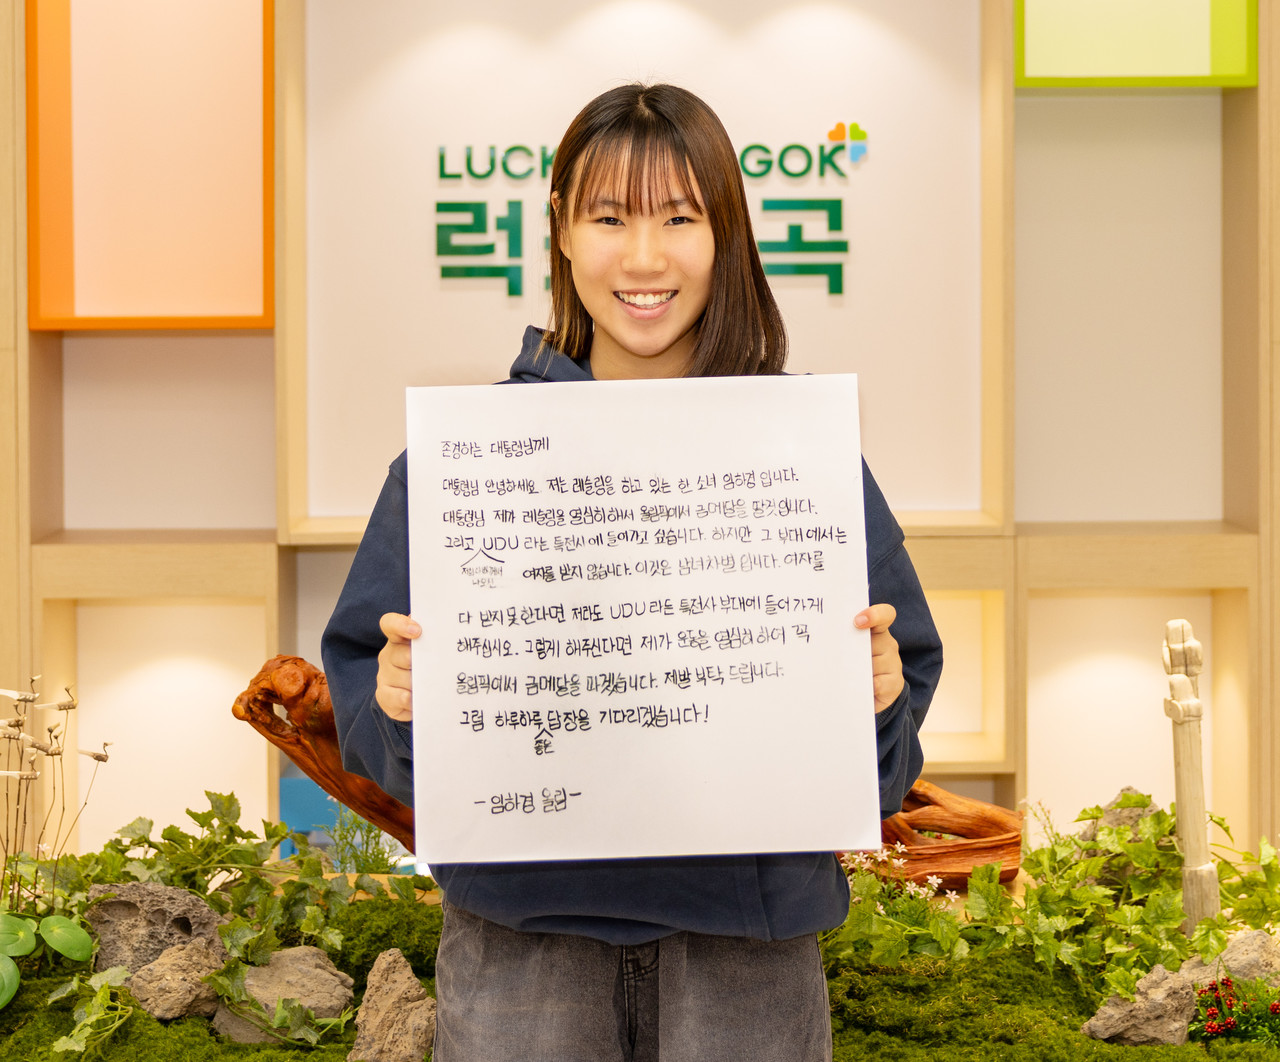 LUCK GOK
럭 곡
존경하는 대통령님께
대통령님 안녕하세요. 저는 레슬링을 하고 있는 한 소녀 임하경 입니다.
대통령님 제가 레슬링을 열심히 해서 올림픽에서 금메달을 딸것입니다.
그리고 UDU 라는 특전사에 들어가고 싶습니다. 하지만 그 부대에서는
여자를 받지 않습니다. 이것은 남녀차별 입니다. 여자를
다 받지 못한다면 저라도 UDU 라든 특전사 부대에 들어가게
해주십시오. 그렇게 해주신다면 제가 운동을 열심히 하여 꼭
올림픽에서 금메달을 따겠습니다. 제발 부탁 드립니다.
그럼 하루하루 답장을 기다리겠습니다!
좋은
- 임하경 올림 -